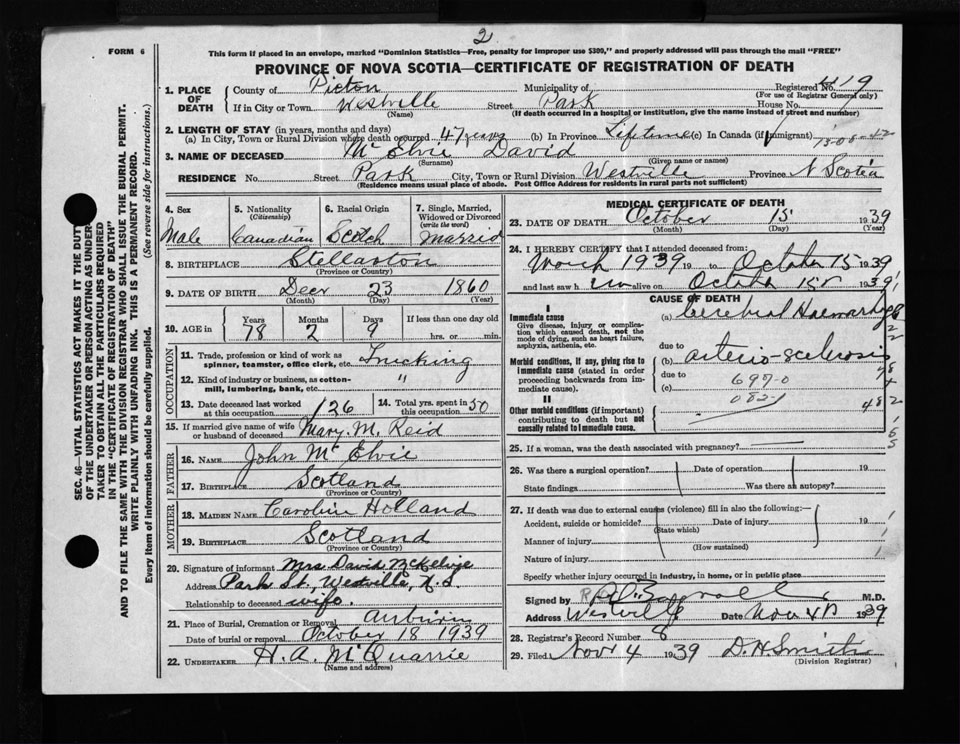 2
FORM 6
This form if placed in an envelope, marked "Dominion Statistics—Free, penalty for improper use $300," and properly addressed will pass through the mail "FREE"
PROVINCE OF NOVA SCOTIA—CERTIFICATE OF REGISTRATION OF DEATH
SEC. 46—VITAL STATISTICS ACT MAKES IT THE DUTY
OF THE UNDERTAKER OR PERSON ACTING AS UNDER-
TAKER TO OBTAIN ALL THE PARTICULARS REQUIRED
IN THE "CERTIFICATE OF REGISTRATION OF DEATH"
AND TO FILE THE SAME WITH THE DIVISION REGISTRAR WHO SHALL ISSUE THE BURIAL PERMIT.
WRITE PLAINLY WITH UNFADING INK. THIS IS A PERMANENT RECORD.
Every item of information should be carefully supplied. (See reverse side for instructions.)
1. PLACE OF DEATH County of Pictou Municipality of Registered No. 419
(For use of Registrar General only)
If in City or Town Westville Street Park House No.
(Name) (If death occurred in a hospital or institution, give the name instead of street and number)
2. LENGTH OF STAY (in years, months and days)
(a) In City, Town or Rural Division where death occurred 47 years (b) In Province Lifetime (c) In Canada (if immigrant)
3. NAME OF DECEASED Mc Elvie David
(Surname) (Given name or names)
RESIDENCE No. Street Park City, Town or Rural Division Westville Province N Scotia
(Residence means usual place of abode. Post Office Address for residents in rural parts not sufficient)
4. Sex Male
5. Nationality (Citizenship) Canadian
6. Racial Origin Scotch
7. Single, Married, Widowed or Divorced (write the word) Married
8. BIRTHPLACE Stellarton
(Province or Country)
9. DATE OF BIRTH Decr 23 1860
(Month) (Day) (Year)
10. AGE in Years 78 Months 2 Days 9 If less than one day old hrs. or min.
OCCUPATION
11. Trade, profession or kind of work as spinner, teamster, office clerk, etc. Trucking
12. Kind of industry or business, as cotton-mill, lumbering, bank, etc. "
13. Date deceased last worked at this occupation 126
14. Total yrs. spent in this occupation 50
15. If married give name of wife or husband of deceased Mary. M. Reid
FATHER
16. NAME John Mc Elvie
17. BIRTHPLACE Scotland
(Province or Country)
MOTHER
18. MAIDEN NAME Caroline Holland
19. BIRTHPLACE Scotland
(Province or Country)
20. Signature of informant Mrs David McKelvie
Address Park St, Westville, N.S
Relationship to deceased wife.
21. Place of Burial, Cremation or Removal Auburn
Date of burial or removal October 18 1939
22. UNDERTAKER H. A. McQuarrie
(Name and address)
MEDICAL CERTIFICATE OF DEATH
23. DATE OF DEATH October 15 1939
(Month) (Day) (Year)
24. I HEREBY CERTIFY that I attended deceased from:
March 1939 19 to October 15 1939
and last saw him alive on October 15 1939
CAUSE OF DEATH
I
Immediate cause
Give disease, injury or complication which caused death, not the mode of dying, such as heart failure, asphyxia, asthenia, etc.
(a) Cerebral Haemorrhage
due to
Morbid conditions, if any, giving rise to immediate cause (stated in order proceeding backwards from immediate cause).
(b) arterio-sclerosis
due to
(c) 697-0
082-1
II
Other morbid conditions (if important) contributing to death but not causally related to immediate cause.
25. If a woman, was the death associated with pregnancy?
26. Was there a surgical operation? Date of operation 19
State findings Was there an autopsy?
27. If death was due to external causes (violence) fill in also the following:—
Accident, suicide or homicide? Date of injury 19
(State which)
Manner of injury
(How sustained)
Nature of injury
Specify whether injury occurred in industry, in home, or in public place
Signed by M.D.
Address Westville Date Nov 4 1939
28. Registrar's Record Number 8
29. Filed Nov 4 1939 D. H Smith
(Division Registrar)